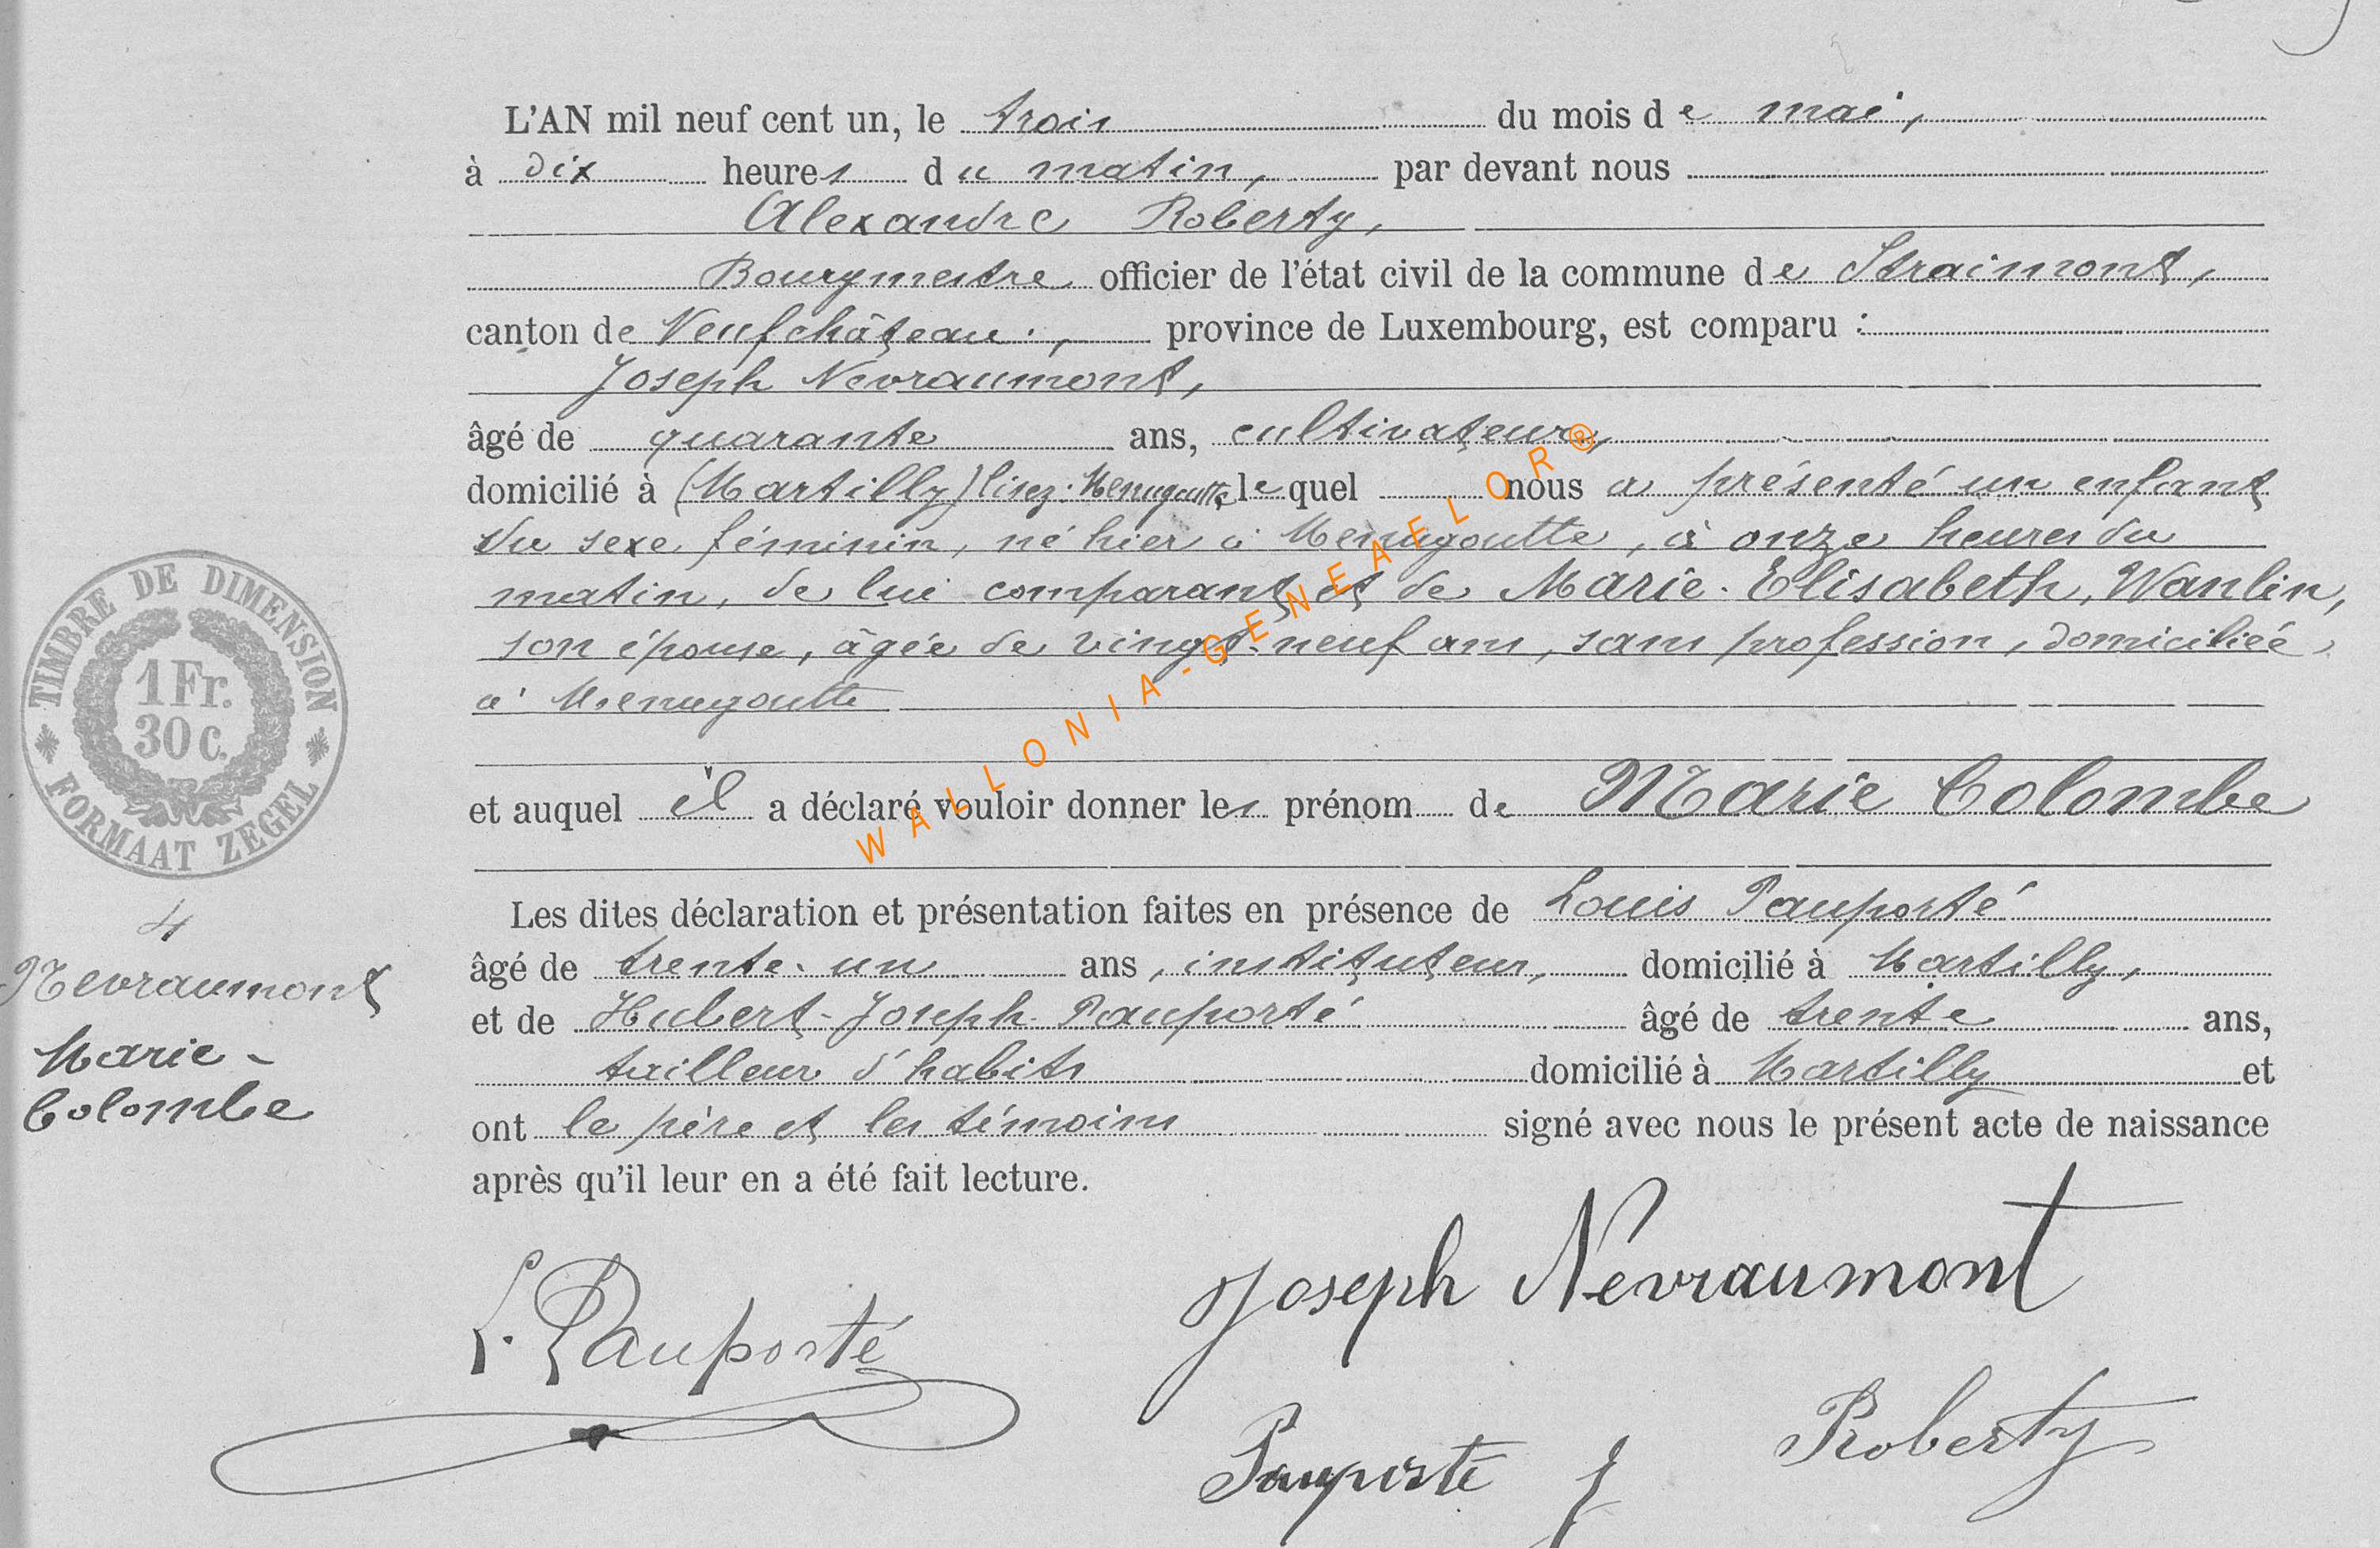 L'AN mil neuf cent un, le trois du mois de mai,
à dix heures du matin, par devant nous
Alexandre Roberty,
Bourgmestre officier de l'état civil de la commune de Straimont,
canton de Neufchâteau, province de Luxembourg, est comparu :
Joseph Nevraumont,
âgé de quarante ans, cultivateur,
domicilié à (Martilly) lisez: Menugoutte, lequel nous a présenté un enfant
du sexe féminin, né hier à Menugoutte, à onze heures du
matin, de lui comparant et de Marie-Elisabeth, Wanlin,
son épouse, âgée de vingt-neuf ans, sans profession, domiciliée
à Menugoutte
et auquel il a déclaré vouloir donner les prénom de Marie Colombe
Les dites déclaration et présentation faites en présence de Louis Pauporté
âgé de trente-un ans, instituteur, domicilié à Martilly,
et de Hubert-Joseph Pauporté âgé de trente ans,
tailleur d'habits domicilié à Martilly et
ont le père et les témoins signé avec nous le présent acte de naissance
après qu'il leur en a été fait lecture.
TIMBRE DE DIMENSION
1 Fr.
30 C.
FORMAAT ZEGEL
4
Nevraumont
Marie-
Colombe
WALLONIA-GENEAFLOR®
L. Pauporté
Joseph Nevraumont
Pauporté
Roberty